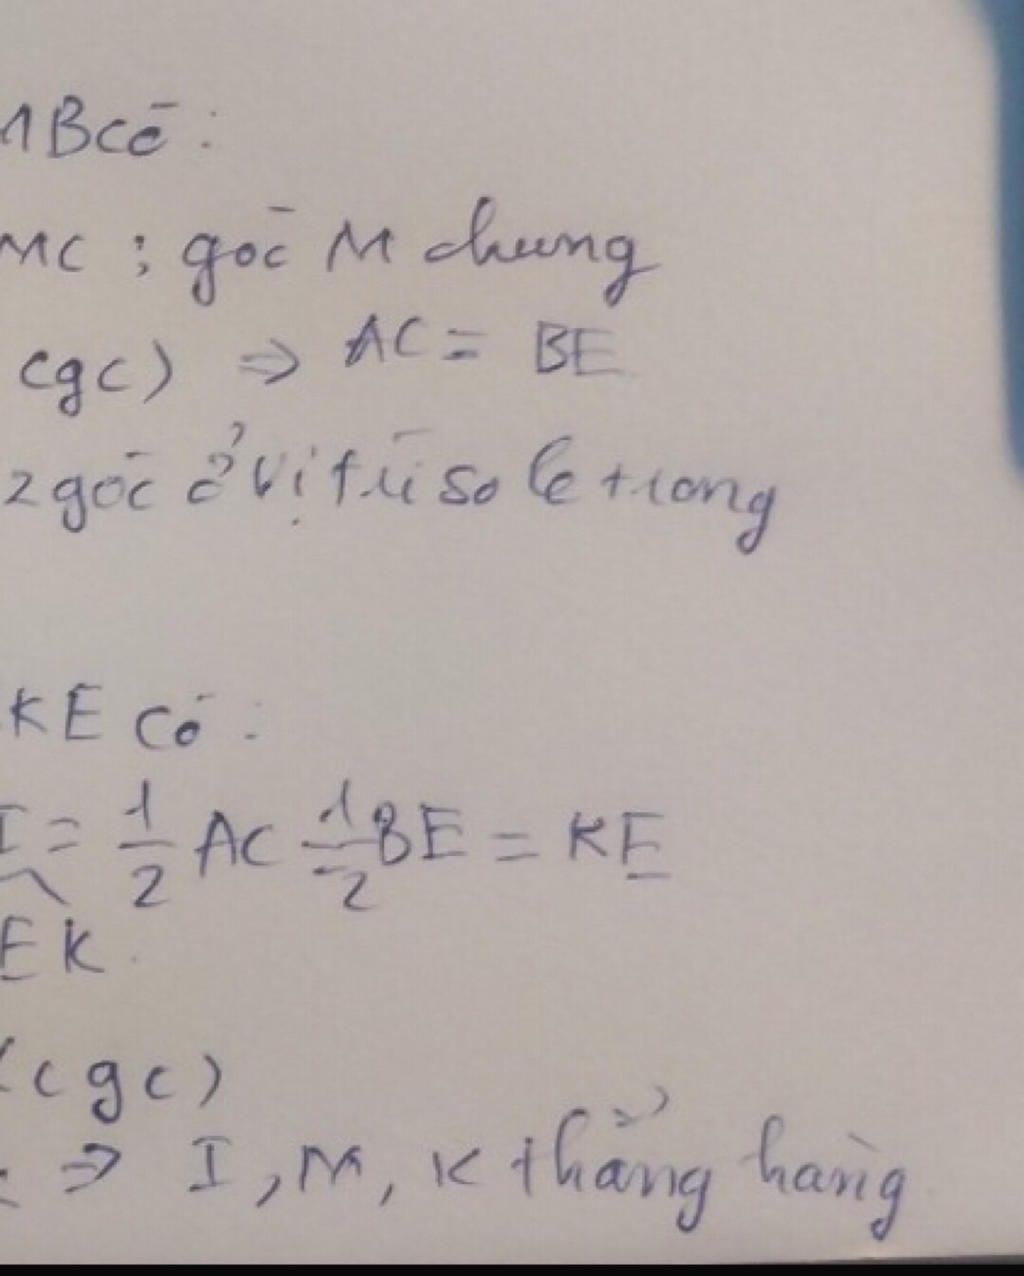 MB có:
MC ; góc M chung
cgc) ⇒ AC = BE
2 góc ở vị trí so le trong
KE có:
I = 1/2 AC = 1/2 BE = KE
EK.
(cgc)
⇒ I, M, K thẳng hàng